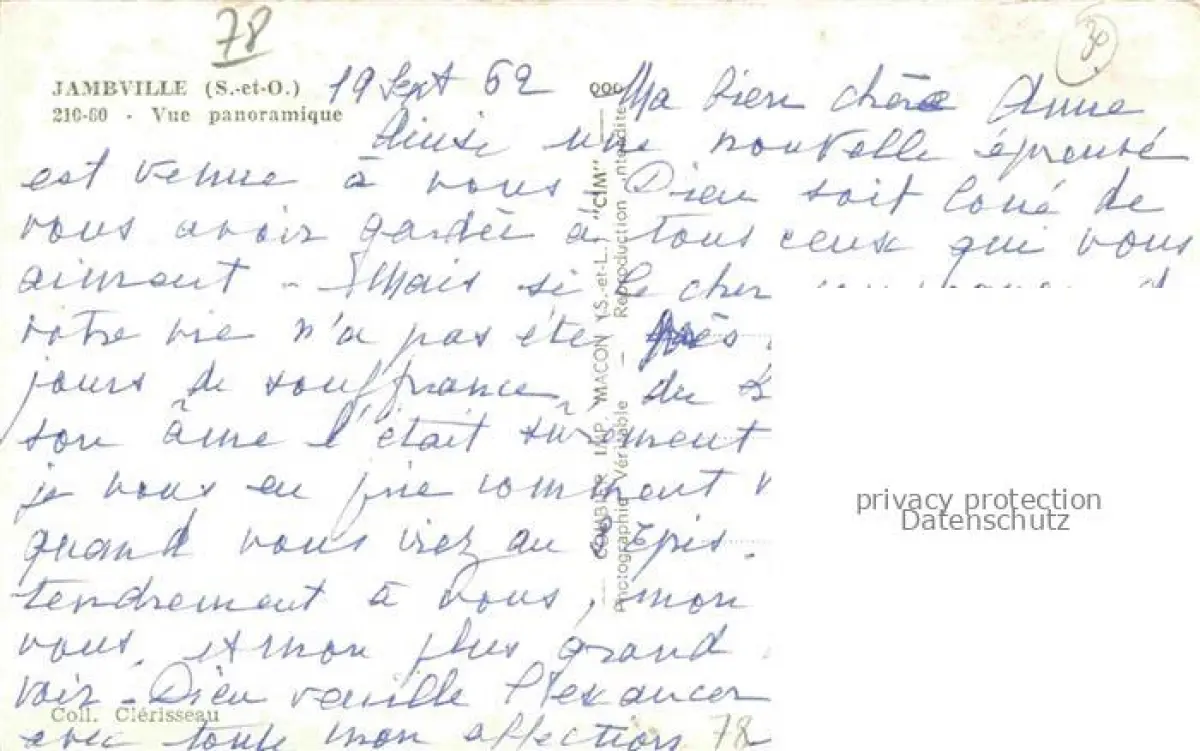 78
30
JAMBVILLE (S.-et-O.)
210-60 - Vue panoramique
19 Sept 62
Ma bien chère Anne
Ainsi une nouvelle épreuve
est venue à vous Dieu soit loué de
vous avoir gardée à tous ceux qui vous
aiment - Mais si le cher
votre vie n'a pas été près
jours de souffrance, du
son âme l'était sûrement
je vous en prie comment
quand vous irez au Tepis.
tendrement à vous, mon
vous, et mon plus grand
voir - Dieu veuille l'exaucer
avec toute mon affection
78
Coll. Clérisseau
COMBIER IMP. MACON (S.-et-L.) "CIM"
Photographie Véritable - Reproduction interdite
privacy protection
Datenschutz